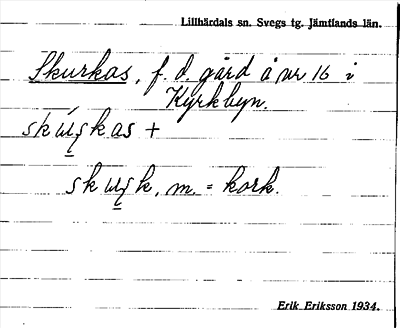 Lillhärdals sn. Svegs tg. Jämtlands län.
Skurkas, f. d. gård å nr 16 i
Kyrkbyn.
skųʂkas +
skųʂk, m. = kork.
Erik Eriksson 1934.